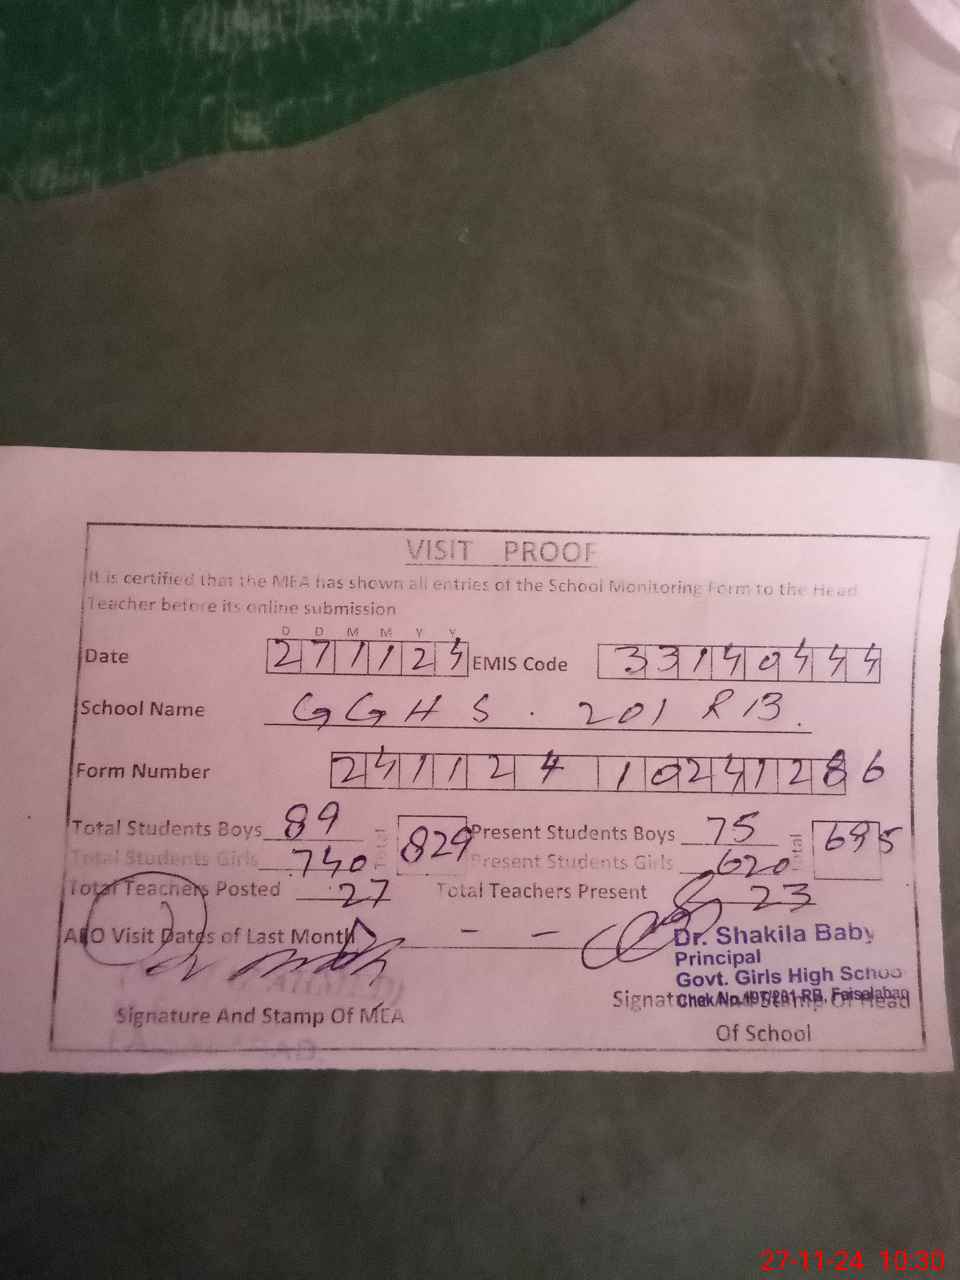 VISIT PROOF
It is certified that the MEA has shown all entries of the School Monitoring Form to the Head
Teacher before its online submission
D D M M Y Y
Date 271124 EMIS Code 33140444
School Name GGHS. 201 RB.
Form Number 241124 10241286
Total Students Boys 89 829 Present Students Boys 75 Total 695
Total Students Girls 740 Present Students Girls 620
Total Teachers Posted 27 Total Teachers Present 23
AEO Visit Dates of Last Month - -
Dr. Shakila Baby
Principal
Govt. Girls High School
Chak No. 197/201 RB, Faisalabad
Signature And Stamp Of Head
Signature And Stamp Of MEA
Of School
27-11-24 10:30